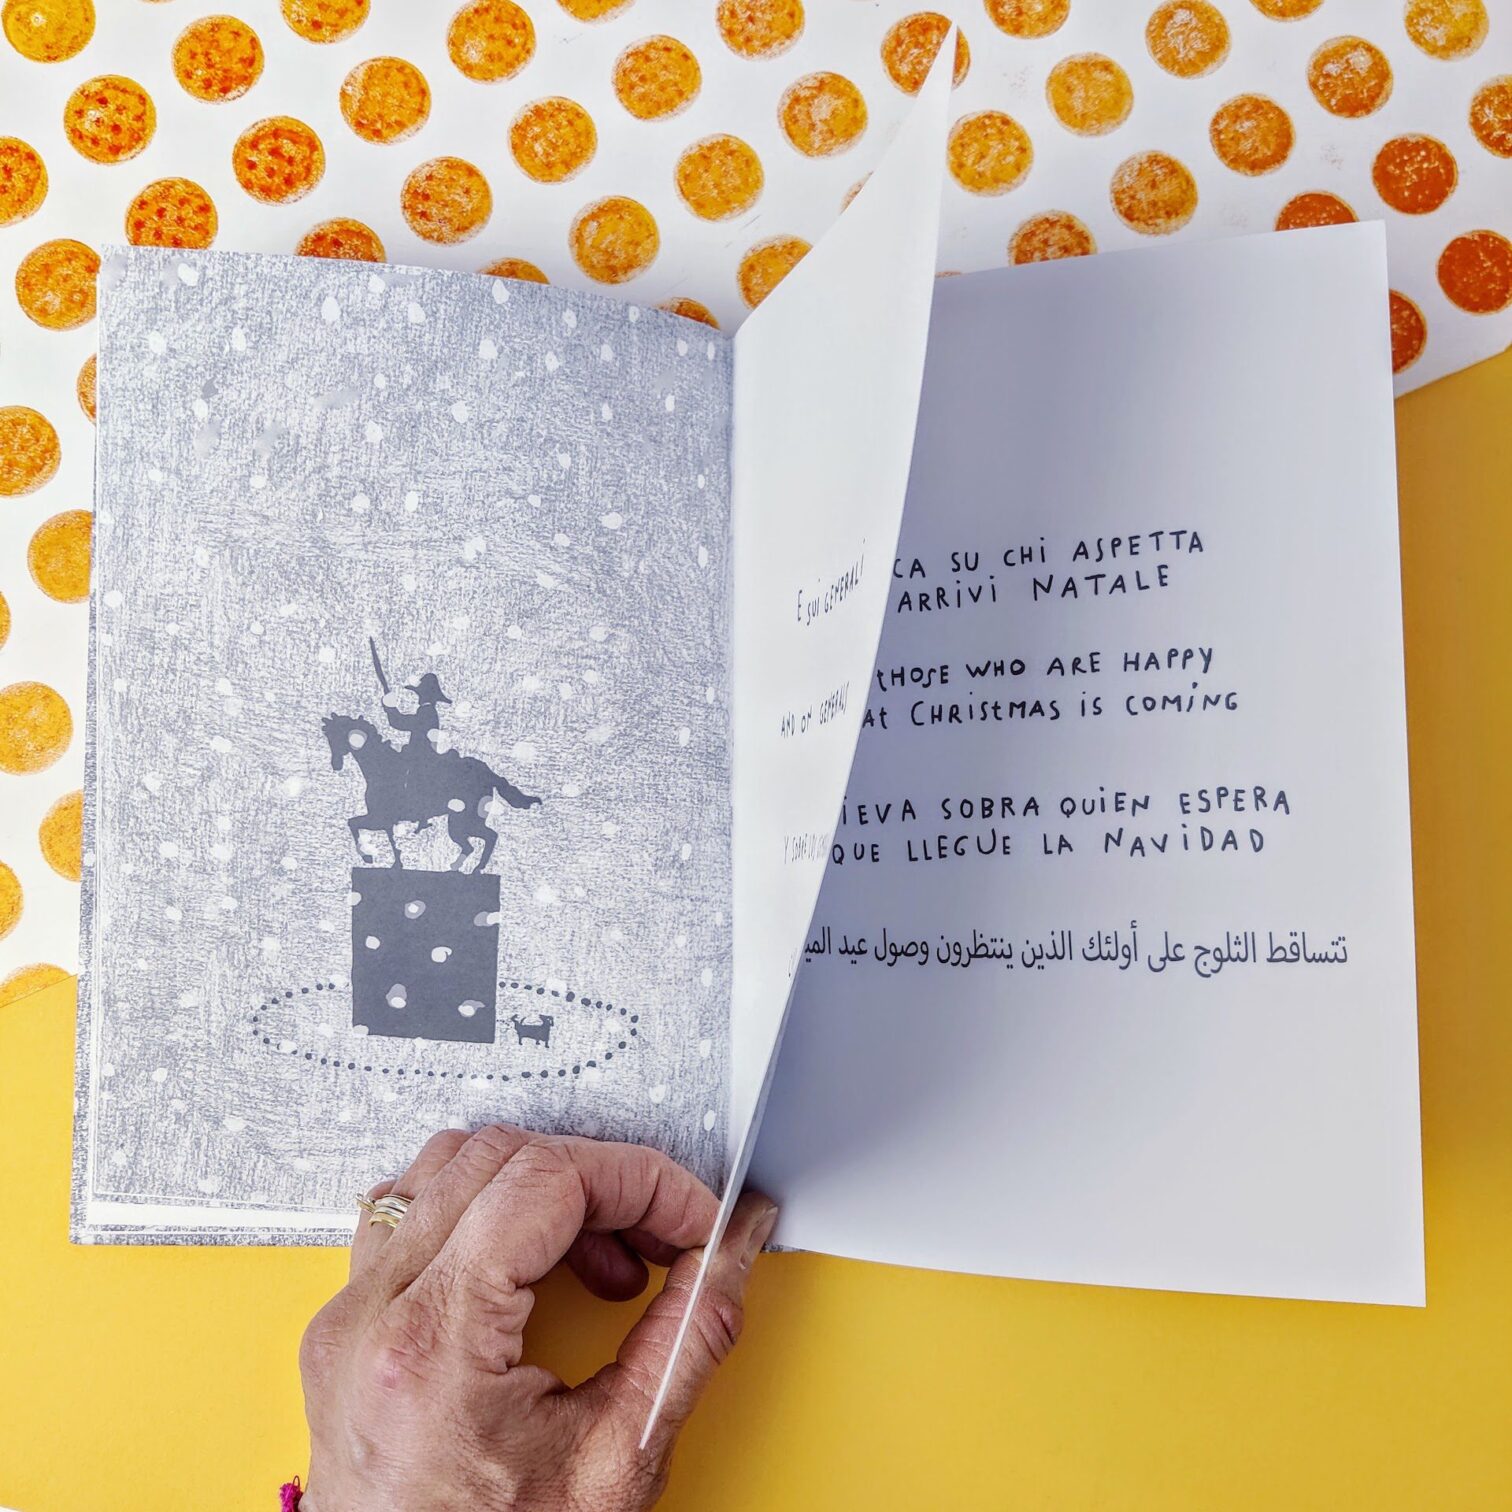 E SUI GENERALI
AND ON GENERALS
Y SOBRE
CA SU CHI ASPETTA
ARRIVI NATALE
THOSE WHO ARE HAPPY
AT CHRISTMAS IS COMING
IEVA SOBRA QUIEN ESPERA
QUE LLEGUE LA NAVIDAD
تتساقط الثلوج على أولئك الذين ينتظرون وصول عيد المي